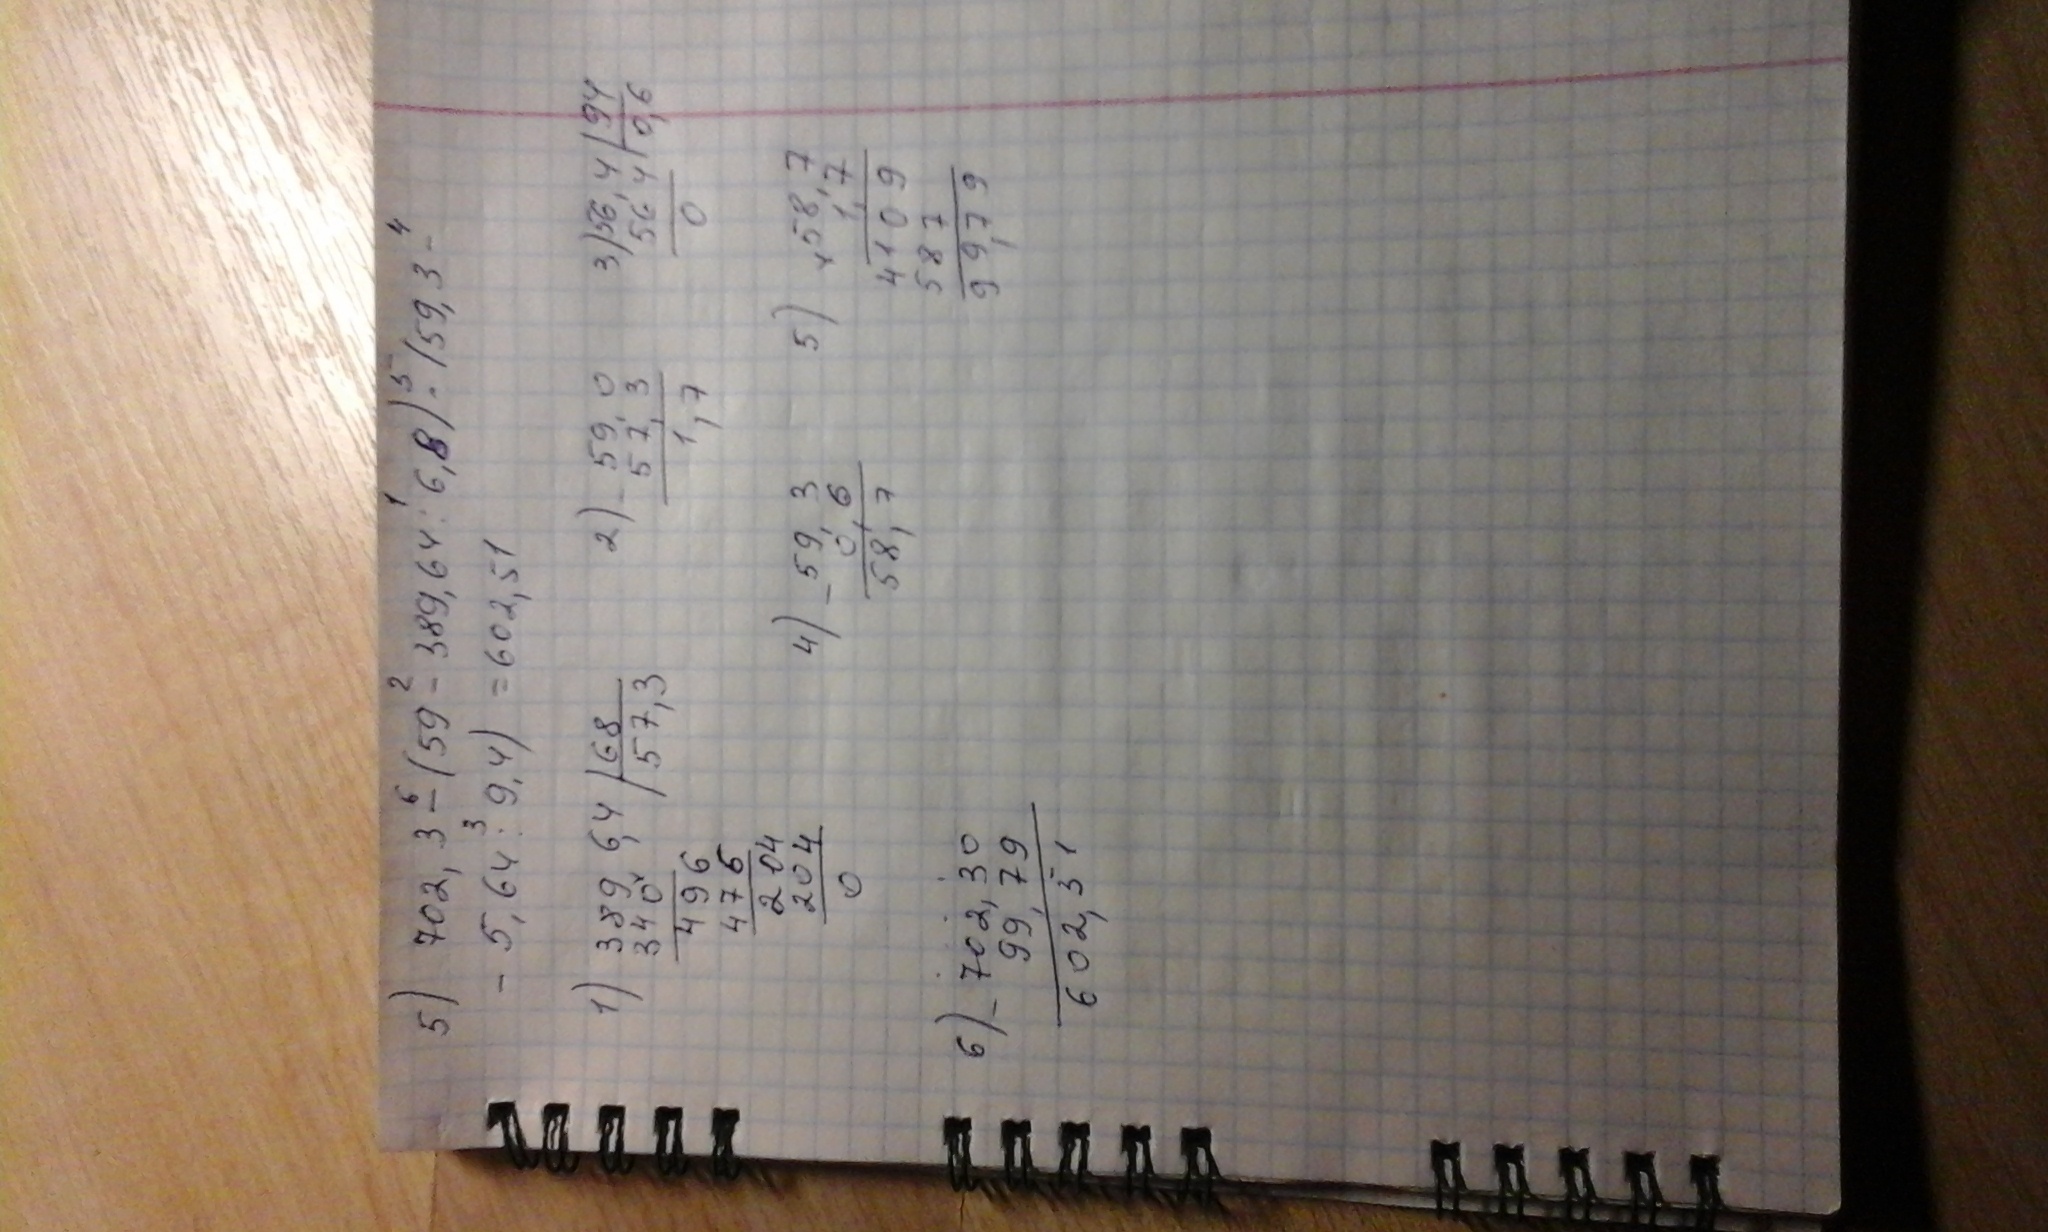 5) 702,3 -⁶ (59 -² 389,64 :¹ 6,8) ·⁵ (59,3 -⁴
- 5,64 :³ 9,4) = 602,51
1) 389 6,4 | 68
340 | 57,3
496
476
204
204
0
2) - 59,0
57,3
1,7
3) 56,4 | 94
56 4 | 0,6
0
4) - 59,3
0,6
58,7
5) × 58,7
1,7
4109
587
99,79
6) - 702,30
99,79
602,51